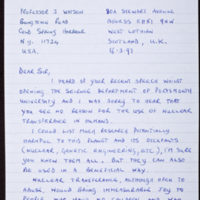 PROFESSOR J WATSON
BUNGTOWN ROAD
COLD SPRINGS HARBOR
N.Y. 11724
U.S.A.
80A STEWART AVENUE
SCOTLAND, U.K.
WEST LOTHIAN
DEAR SIR,
I HEARD OF YOUR RECENT SPEECH WHILST
OPENING THE SCIENCE DEPARTMENT OF PORTSMOUTH
UNIVERSITY AND I WAS SORRY TO HEAR THAT
YOU SEE NO REASON FOR THE USE OF NUCLEAR
TRANSFERENCE IN HUMANS.
I COULD LIST MANY RESEARCH POTENTIALLY
HARMFUL TO THIS PLANET AND ITS OCCUPANTS
(NUCLEAR, GENETIC ENGINEERING, ETC.), I'M SURE
YOU KNOW THEM ALL. BUT THEY CAN ALSO
BE USED IN A BENEFICIAL WAY.
NUCLEAR TRANSFERENCE, ALTHOUGH OPEN TO
ABUSE, WOULD BRING IMMEASURABLE JOY TO
PEOPLE WHO HAVE NO CHILDREN AND WHO